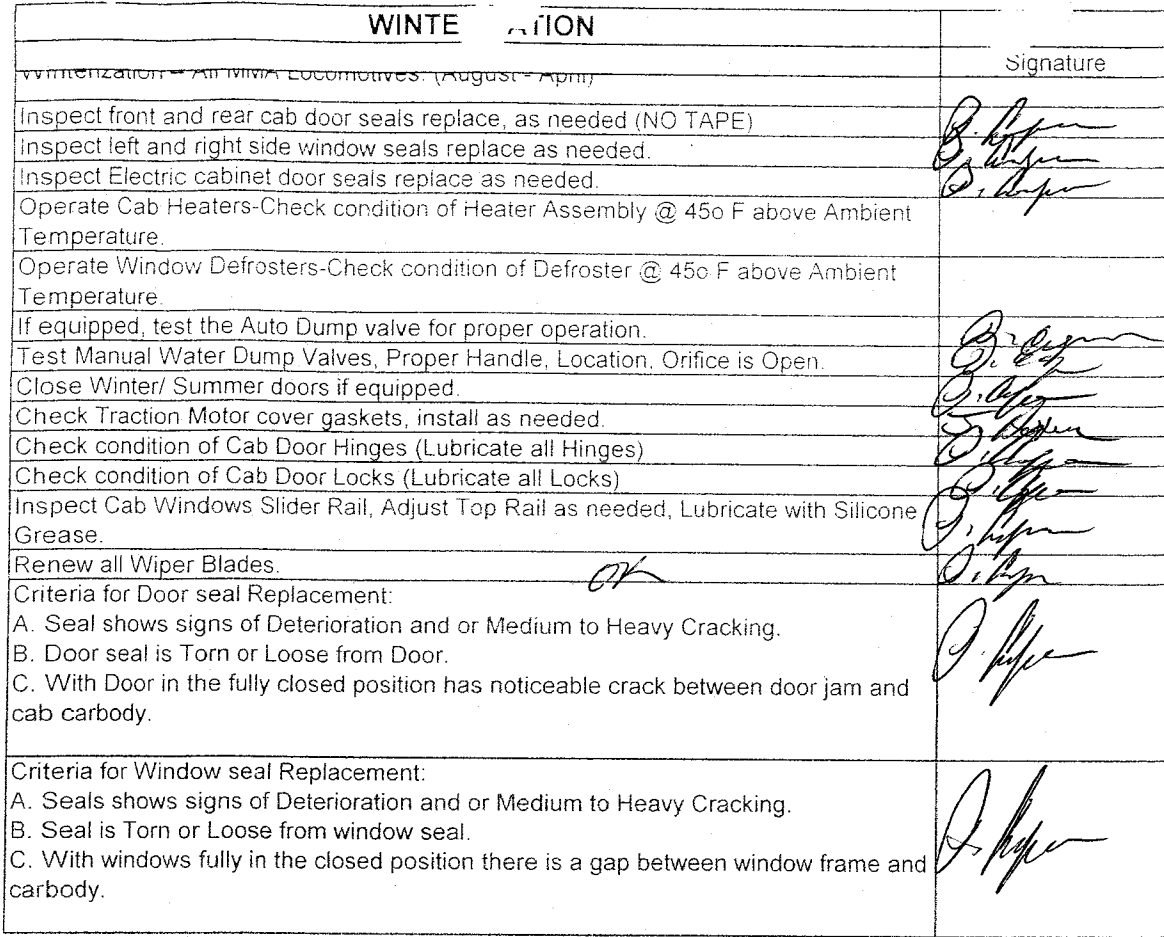 WINTE ATION
Signature
Winterization – All MMA Locomotives: (August - April)
Inspect front and rear cab door seals replace, as needed (NO TAPE)
Inspect left and right side window seals replace as needed.
Inspect Electric cabinet door seals replace as needed.
Operate Cab Heaters-Check condition of Heater Assembly @ 45o F above Ambient
Temperature.
Operate Window Defrosters-Check condition of Defroster @ 45o F above Ambient
Temperature.
If equipped, test the Auto Dump valve for proper operation.
Test Manual Water Dump Valves, Proper Handle, Location, Orifice is Open.
Close Winter/ Summer doors if equipped.
Check Traction Motor cover gaskets, install as needed.
Check condition of Cab Door Hinges (Lubricate all Hinges)
Check condition of Cab Door Locks (Lubricate all Locks)
Inspect Cab Windows Slider Rail, Adjust Top Rail as needed, Lubricate with Silicone
Grease.
Renew all Wiper Blades. OK
Criteria for Door seal Replacement:
A. Seal shows signs of Deterioration and or Medium to Heavy Cracking.
B. Door seal is Torn or Loose from Door.
C. With Door in the fully closed position has noticeable crack between door jam and
cab carbody.
Criteria for Window seal Replacement:
A. Seals shows signs of Deterioration and or Medium to Heavy Cracking.
B. Seal is Torn or Loose from window seal.
C. With windows fully in the closed position there is a gap between window frame and
carbody.